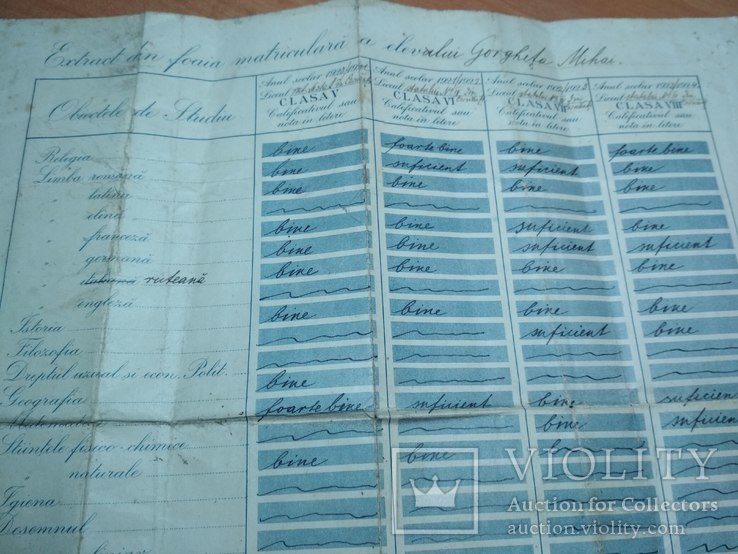 Extract din foaia matriculară a elevului Gorghița Mihai.
Obiectele de Studiu
Anul școlar 1920/1921 Anul școlar 1921/1922 Anul școlar 1922/1923 Anul școlar 1923/1924
Liceul Liceul Liceul Liceul
CLASA V CLASA VI CLASA VII CLASA VIII
Calificativul sau Calificativul sau Calificativul sau Calificativul sau
nota în litere nota în litere nota în litere nota în litere
Religia bine foarte bine bine foarte bine
Limba română bine suficient suficient bine
" latină bine bine bine bine
" elină
" franceză bine bine suficient bine
" germană bine bine suficient suficient
" italiană ruteană bine bine bine bine
" engleză
Istoria bine bine bine bine
Filozofia suficient bine
Dreptul uzual si econ. Polit.
Geografia bine bine bine suficient
Matematica foarte bine suficient bine suficient
Stiintele fizico-chimice
" naturale bine bine
Igiena
Desemnul
VIOLITY
Auction for Collectors
auction.violity.com